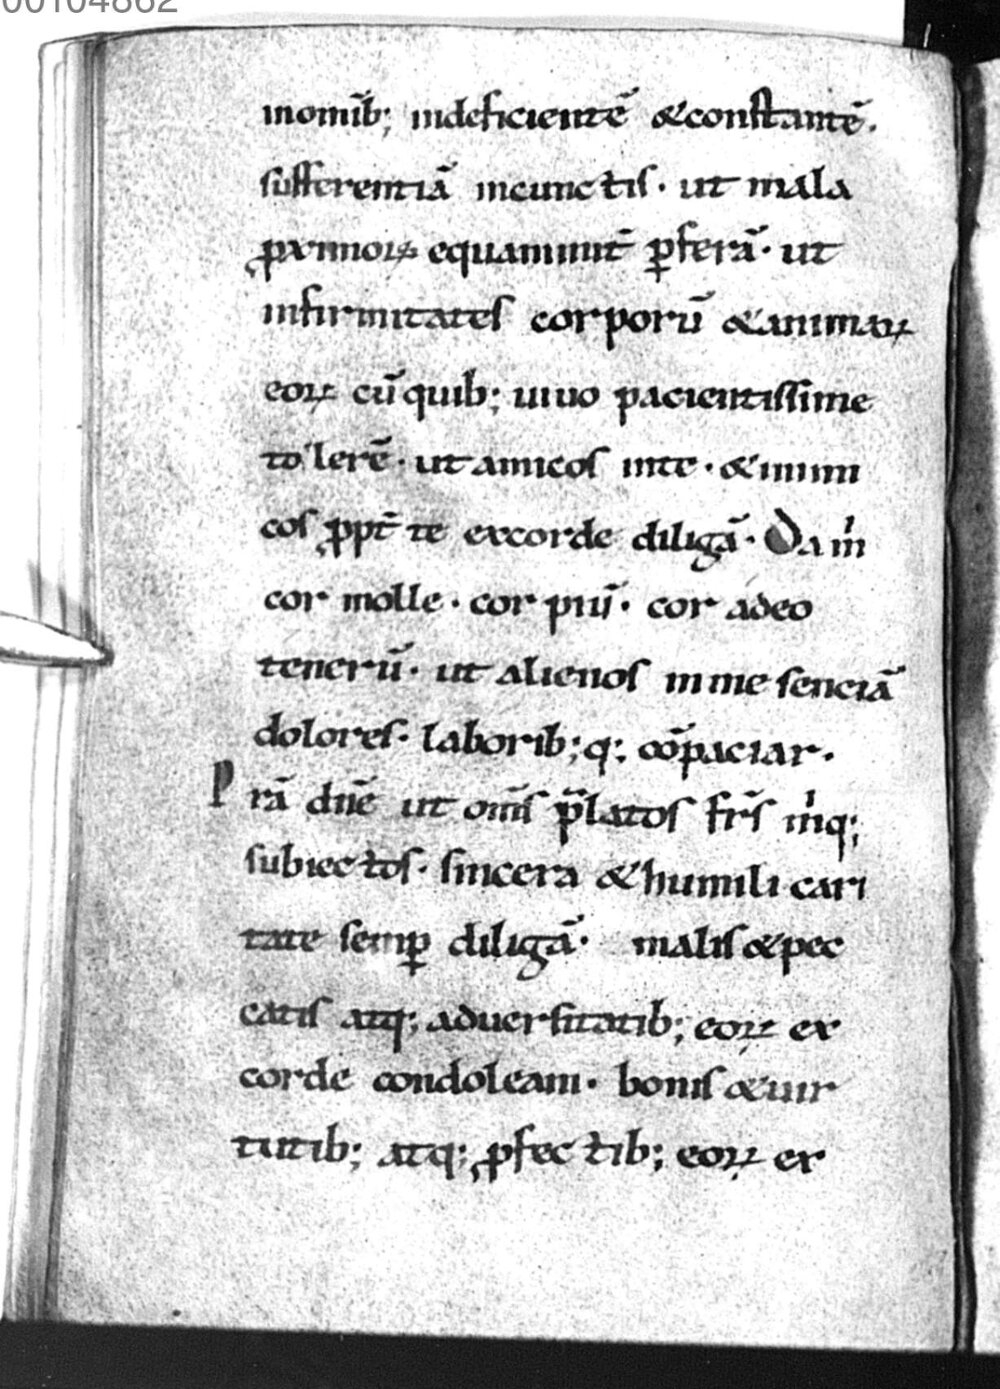 00104862
inomīb; indeficientē &constantē.
sufferentiā incunctis· ut mala
ꝓximoꝝ equanimit̄ ꝑferā· ut
infirmitates corporū &animaꝝ
eoꝝ cū quib; uiuo pacientissime
tolerē· ut amicos inte· &inimi
cos ꝓpt̄ te excorde diligā· Da m̍
cor molle· cor piū· cor adeo
tenerū· ut alienos inme senciā
dolores· laborib;q; cōpaciar·
Prā dn̄e ut om̄s p̄latos fr̄s m̍q;
subiectos· sincera &humili cari
tate semꝑ diligā· malis &pec
catis atq; aduersitatib; eoꝝ ex
corde condoleam· bonis &uir
tutib; atq; ꝓfectib; eoꝝ ex